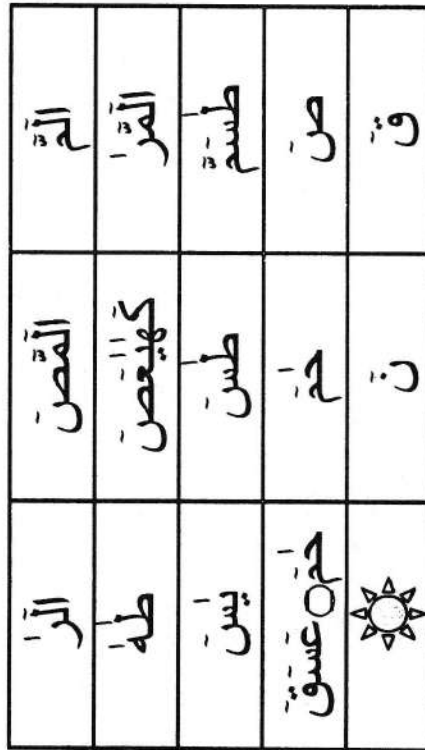 الٓمّٓ الٓمّٓصٓ الٓرٰ
الٓمّٓرٰ كٓهٰيٰعٓصٓ طٰهٰ
طٰسٓمّٓ طٰسٓ يٰسٓ
صٓ حٰمٓ حٰمٓ ○ عٓسٓقٓ
قٓ نٓ